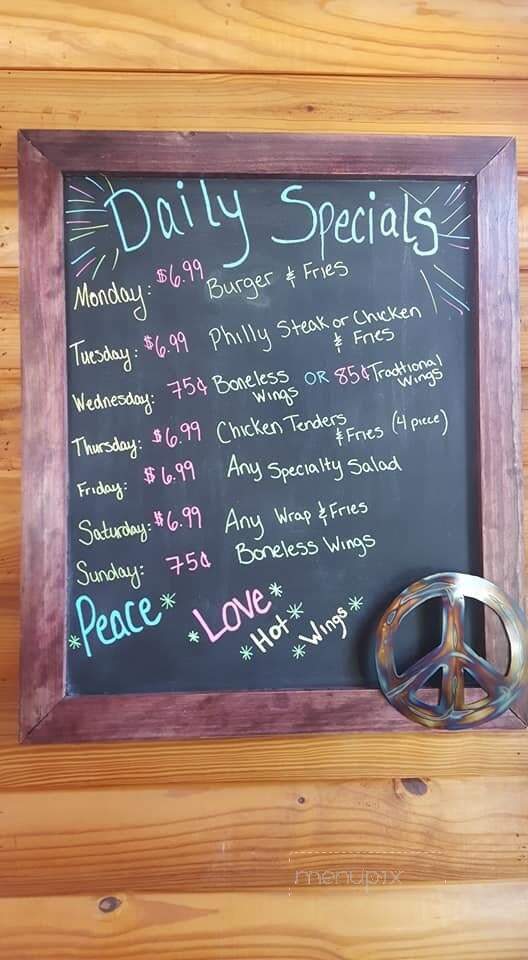 Daily Specials
Monday: $6.99 Burger & Fries
Tuesday: $6.99 Philly Steak or Chicken
& Fries
Wednesday: 75¢ Boneless OR 85¢ Tradtional
Wings Wings
Thursday: $6.99 Chicken Tenders
& Fries (4 piece)
Friday: $6.99 Any Specialty Salad
Saturday: $6.99 Any Wrap & Fries
Sunday: 75¢ Boneless Wings
Peace Love
Hot Wings
menupix